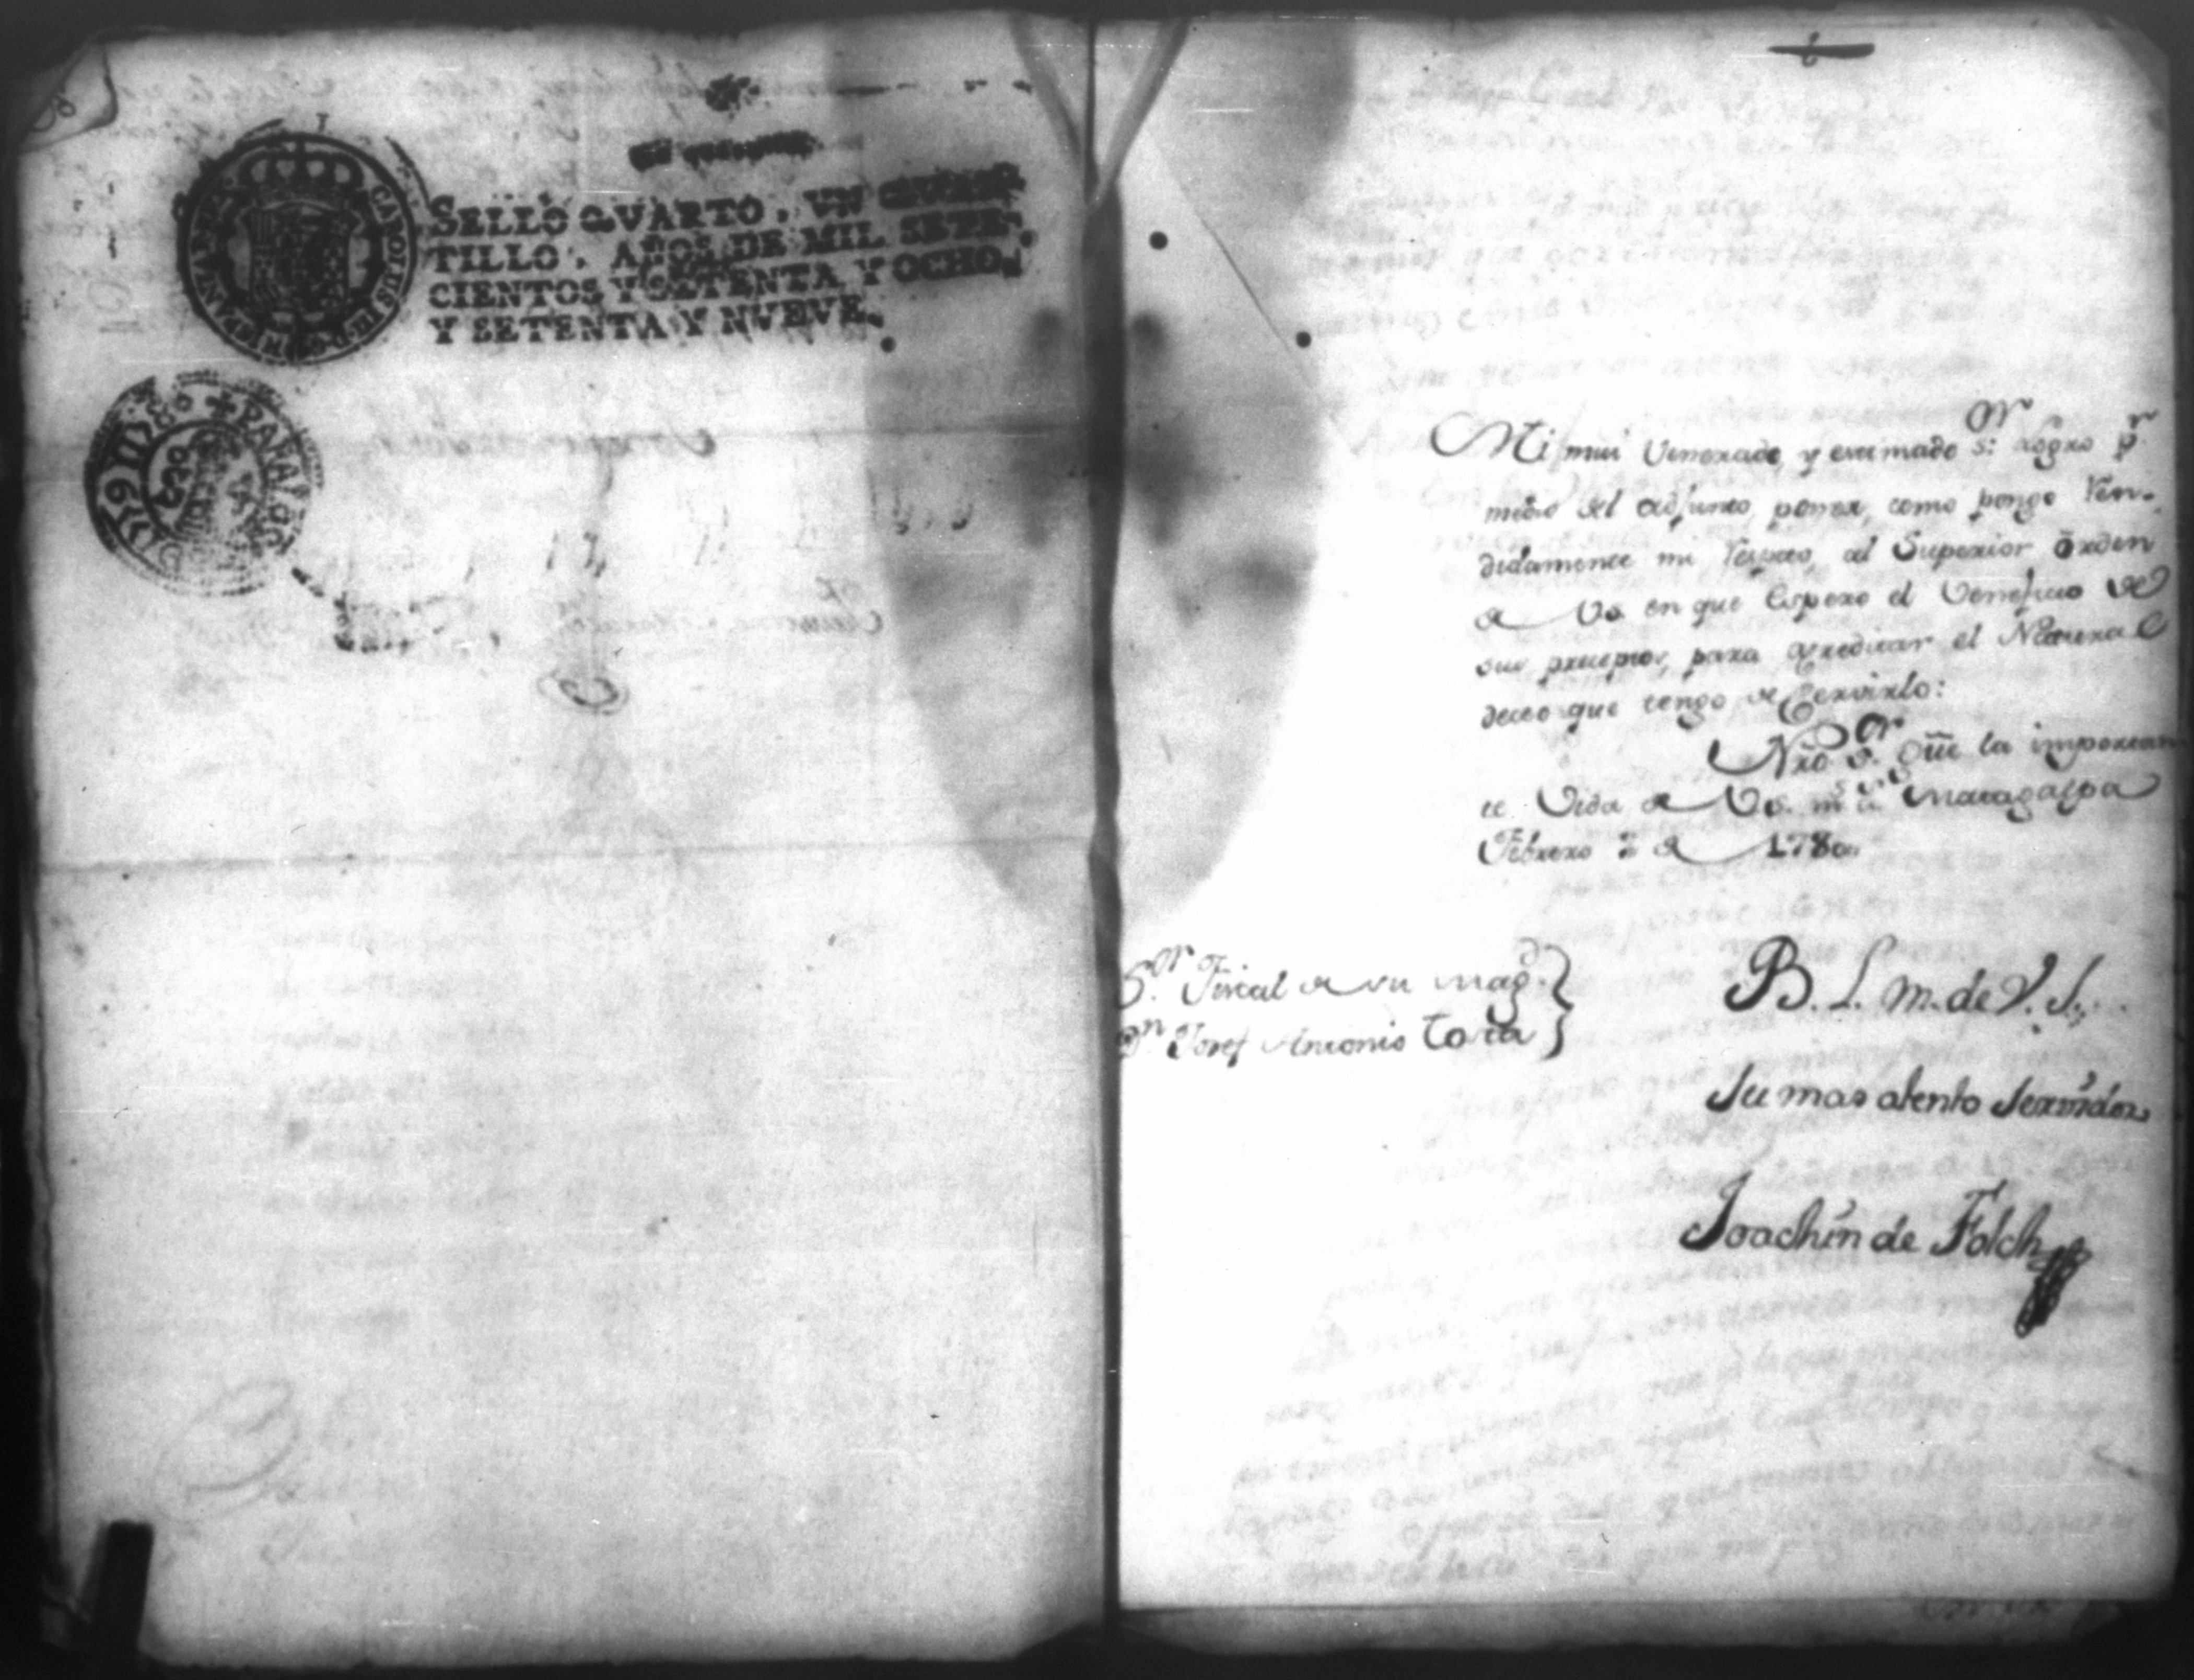 SELLO QVARTO, VN QVAR
TILLO, AÑOS DE MIL SETE
CIENTOS Y SETENTA Y OCHO,
Y SETENTA Y NVEVE.
CAROLUS III D G HISPAN REX
Mi mui Venerado y estimado S.or logro p.r
medio del adjunto poner, como pongo Ren-
didamente mi respeto, al Superior orden
de Vs. en que Espero el Veneficio de
sus preceptos, para acreditar el Natural
deceo que tengo de Servirlo:
Nro S.or gue la importan
te Vida de Vs. m.s a.s Matagalpa
Febrero 2 de 1780.
S.or Fiscal de su Mag.d
D.n Josef Antonio Costa
B. L. M. de V. S.
Su mas atento Servidor
Joachin de Folch